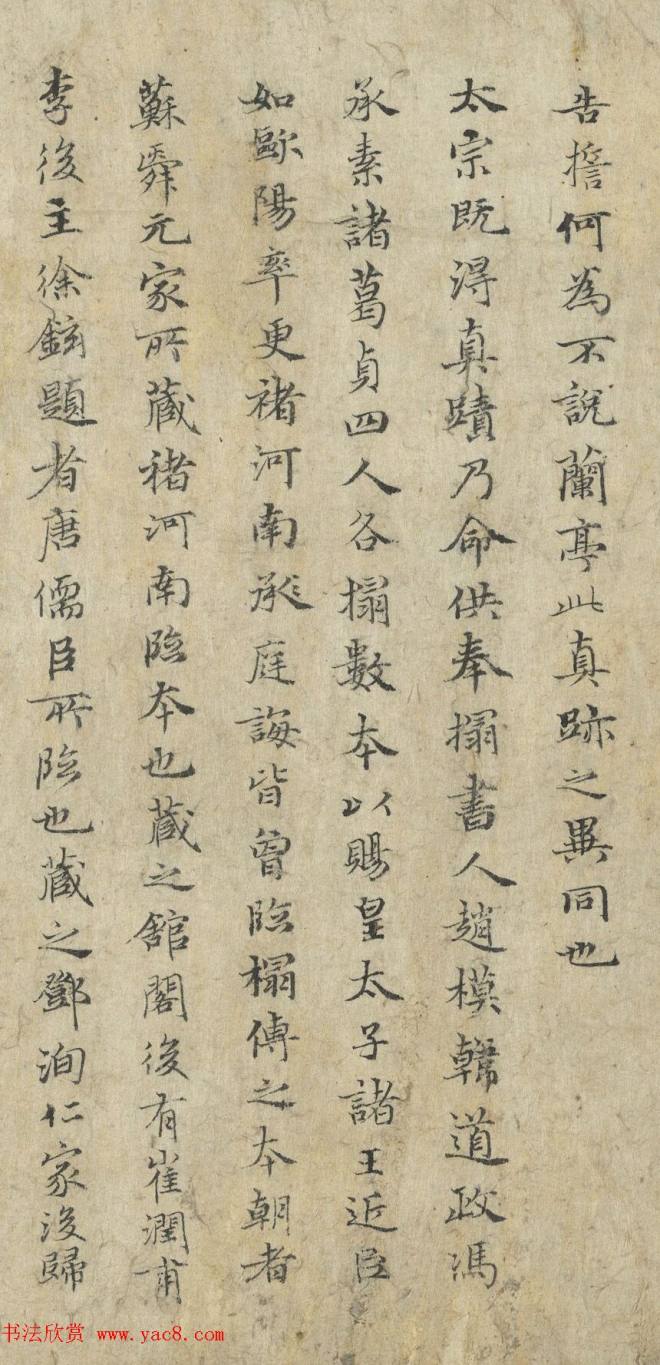 告搚何為不說蘭亭此真跡之異同也
太宗既得真蹟乃命供奉搨書人趙模韓道政馮
承素諸葛貞四人各搨數本以賜皇太子諸王近臣
如歐陽率更褚河南承庭誨皆曾臨榻傳之本朝者
蘇舜元家所藏褚河南臨本也藏之舘閣後有崔潤甫
李後主徐鉉題者唐儒臣所臨也藏之鄧洵仁家後歸
书法欣赏 www.yac8.com